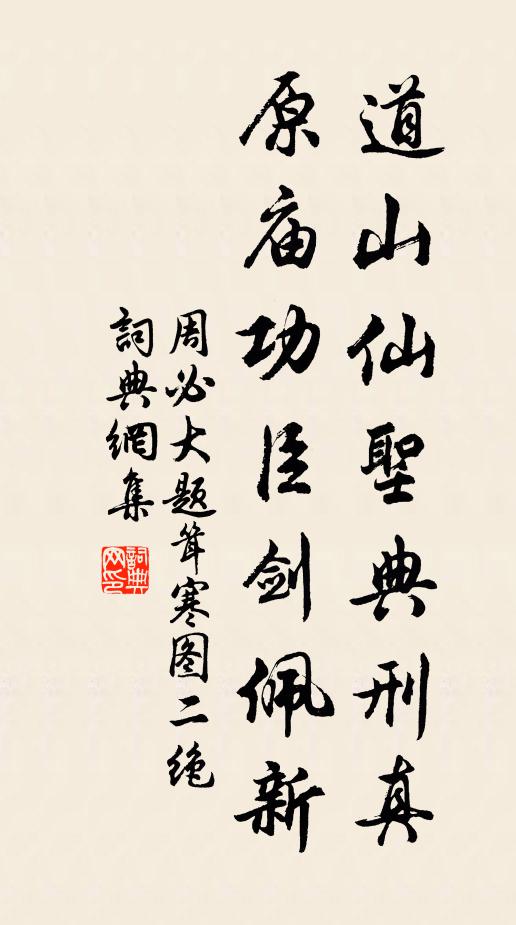 道山仙聖典刑真
原庙功臣剑佩新
周必大题耸寒图二绝
詞典網集
詞典网印